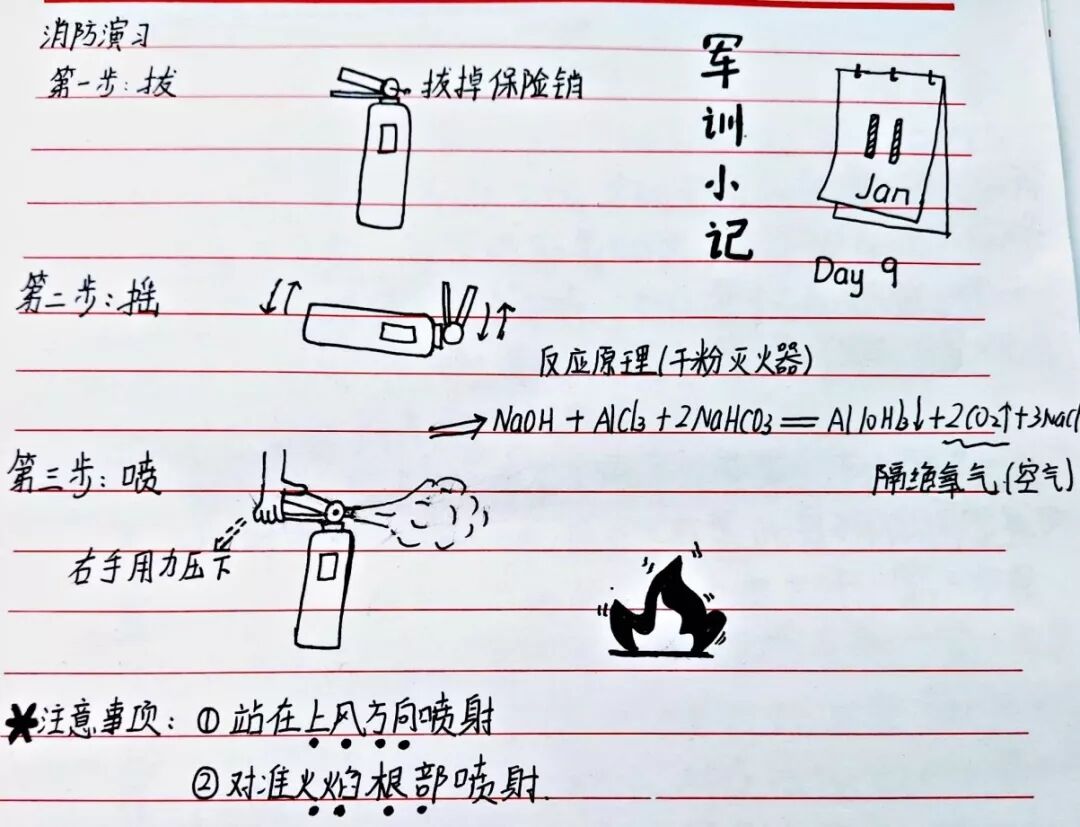 消防演习
第一步:拔
拔掉保险销
军训小记
11
Jan
Day 9
第二步:摇
反应原理(干粉灭火器)
⇒NaOH + AlCl3 + 2NaHCO3 = Al(OH)3↓+2CO2↑+3NaCl
隔绝氧气(空气)
第三步:喷
右手用力压下
*注意事项:①站在上风方向喷射
②对准火焰根部喷射.